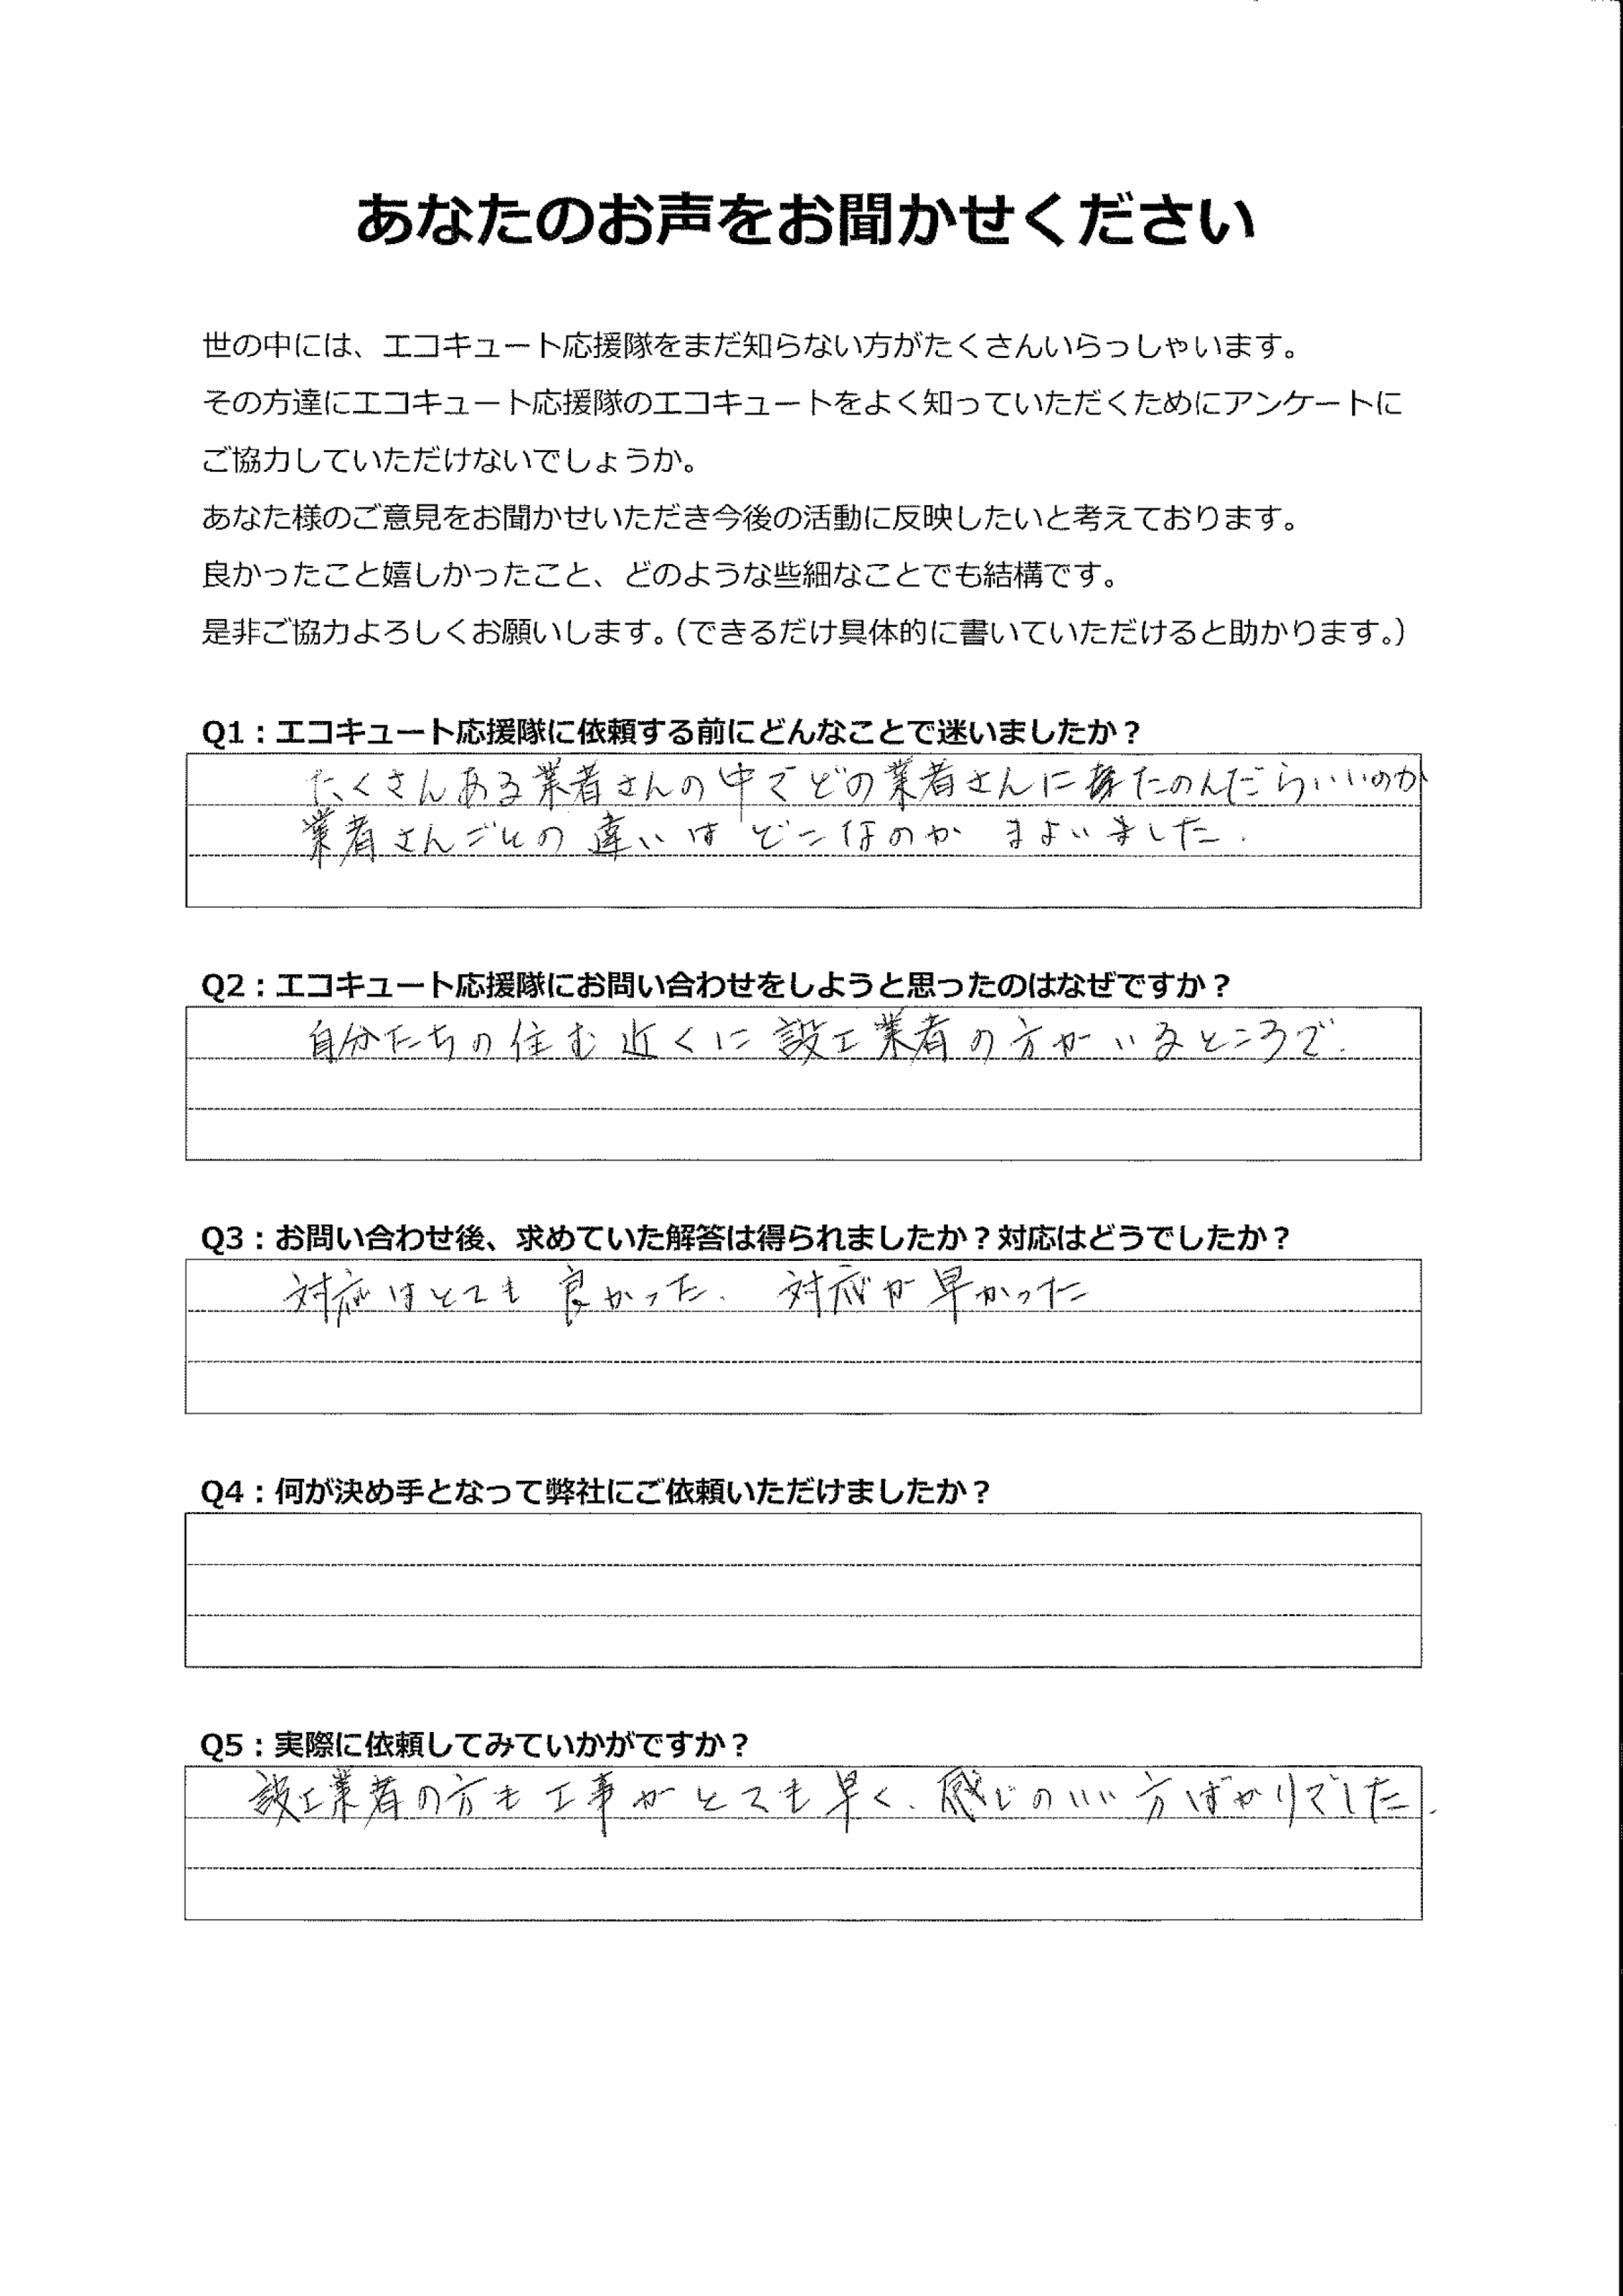 あなたのお声をお聞かせください
世の中には、エコキュート応援隊をまだ知らない方がたくさんいらっしゃいます。
その方達にエコキュート応援隊のエコキュートをよく知っていただくためにアンケートに
ご協力していただけないでしょうか。
あなた様のご意見をお聞かせいただき今後の活動に反映したいと考えております。
良かったこと嬉しかったこと、どのような些細なことでも結構です。
是非ご協力よろしくお願いします。（できるだけ具体的に書いていただけると助かります。）
Q1：エコキュート応援隊に依頼する前にどんなことで迷いましたか？
たくさんある業者さんの中でどの業者さんにたのんだらいいのか
業者さんごとの違いはどこなのか まよいました.
Q2：エコキュート応援隊にお問い合わせをしようと思ったのはなぜですか？
自分たちの住む近くに設工業者の方がいるところで.
Q3：お問い合わせ後、求めていた解答は得られましたか？対応はどうでしたか？
対応はとても良かった. 対応が早かった
Q4：何が決め手となって弊社にご依頼いただけましたか？
Q5：実際に依頼してみていかがですか？
設工業者の方も工事がとても早く、感じのいい方ばかりでした.